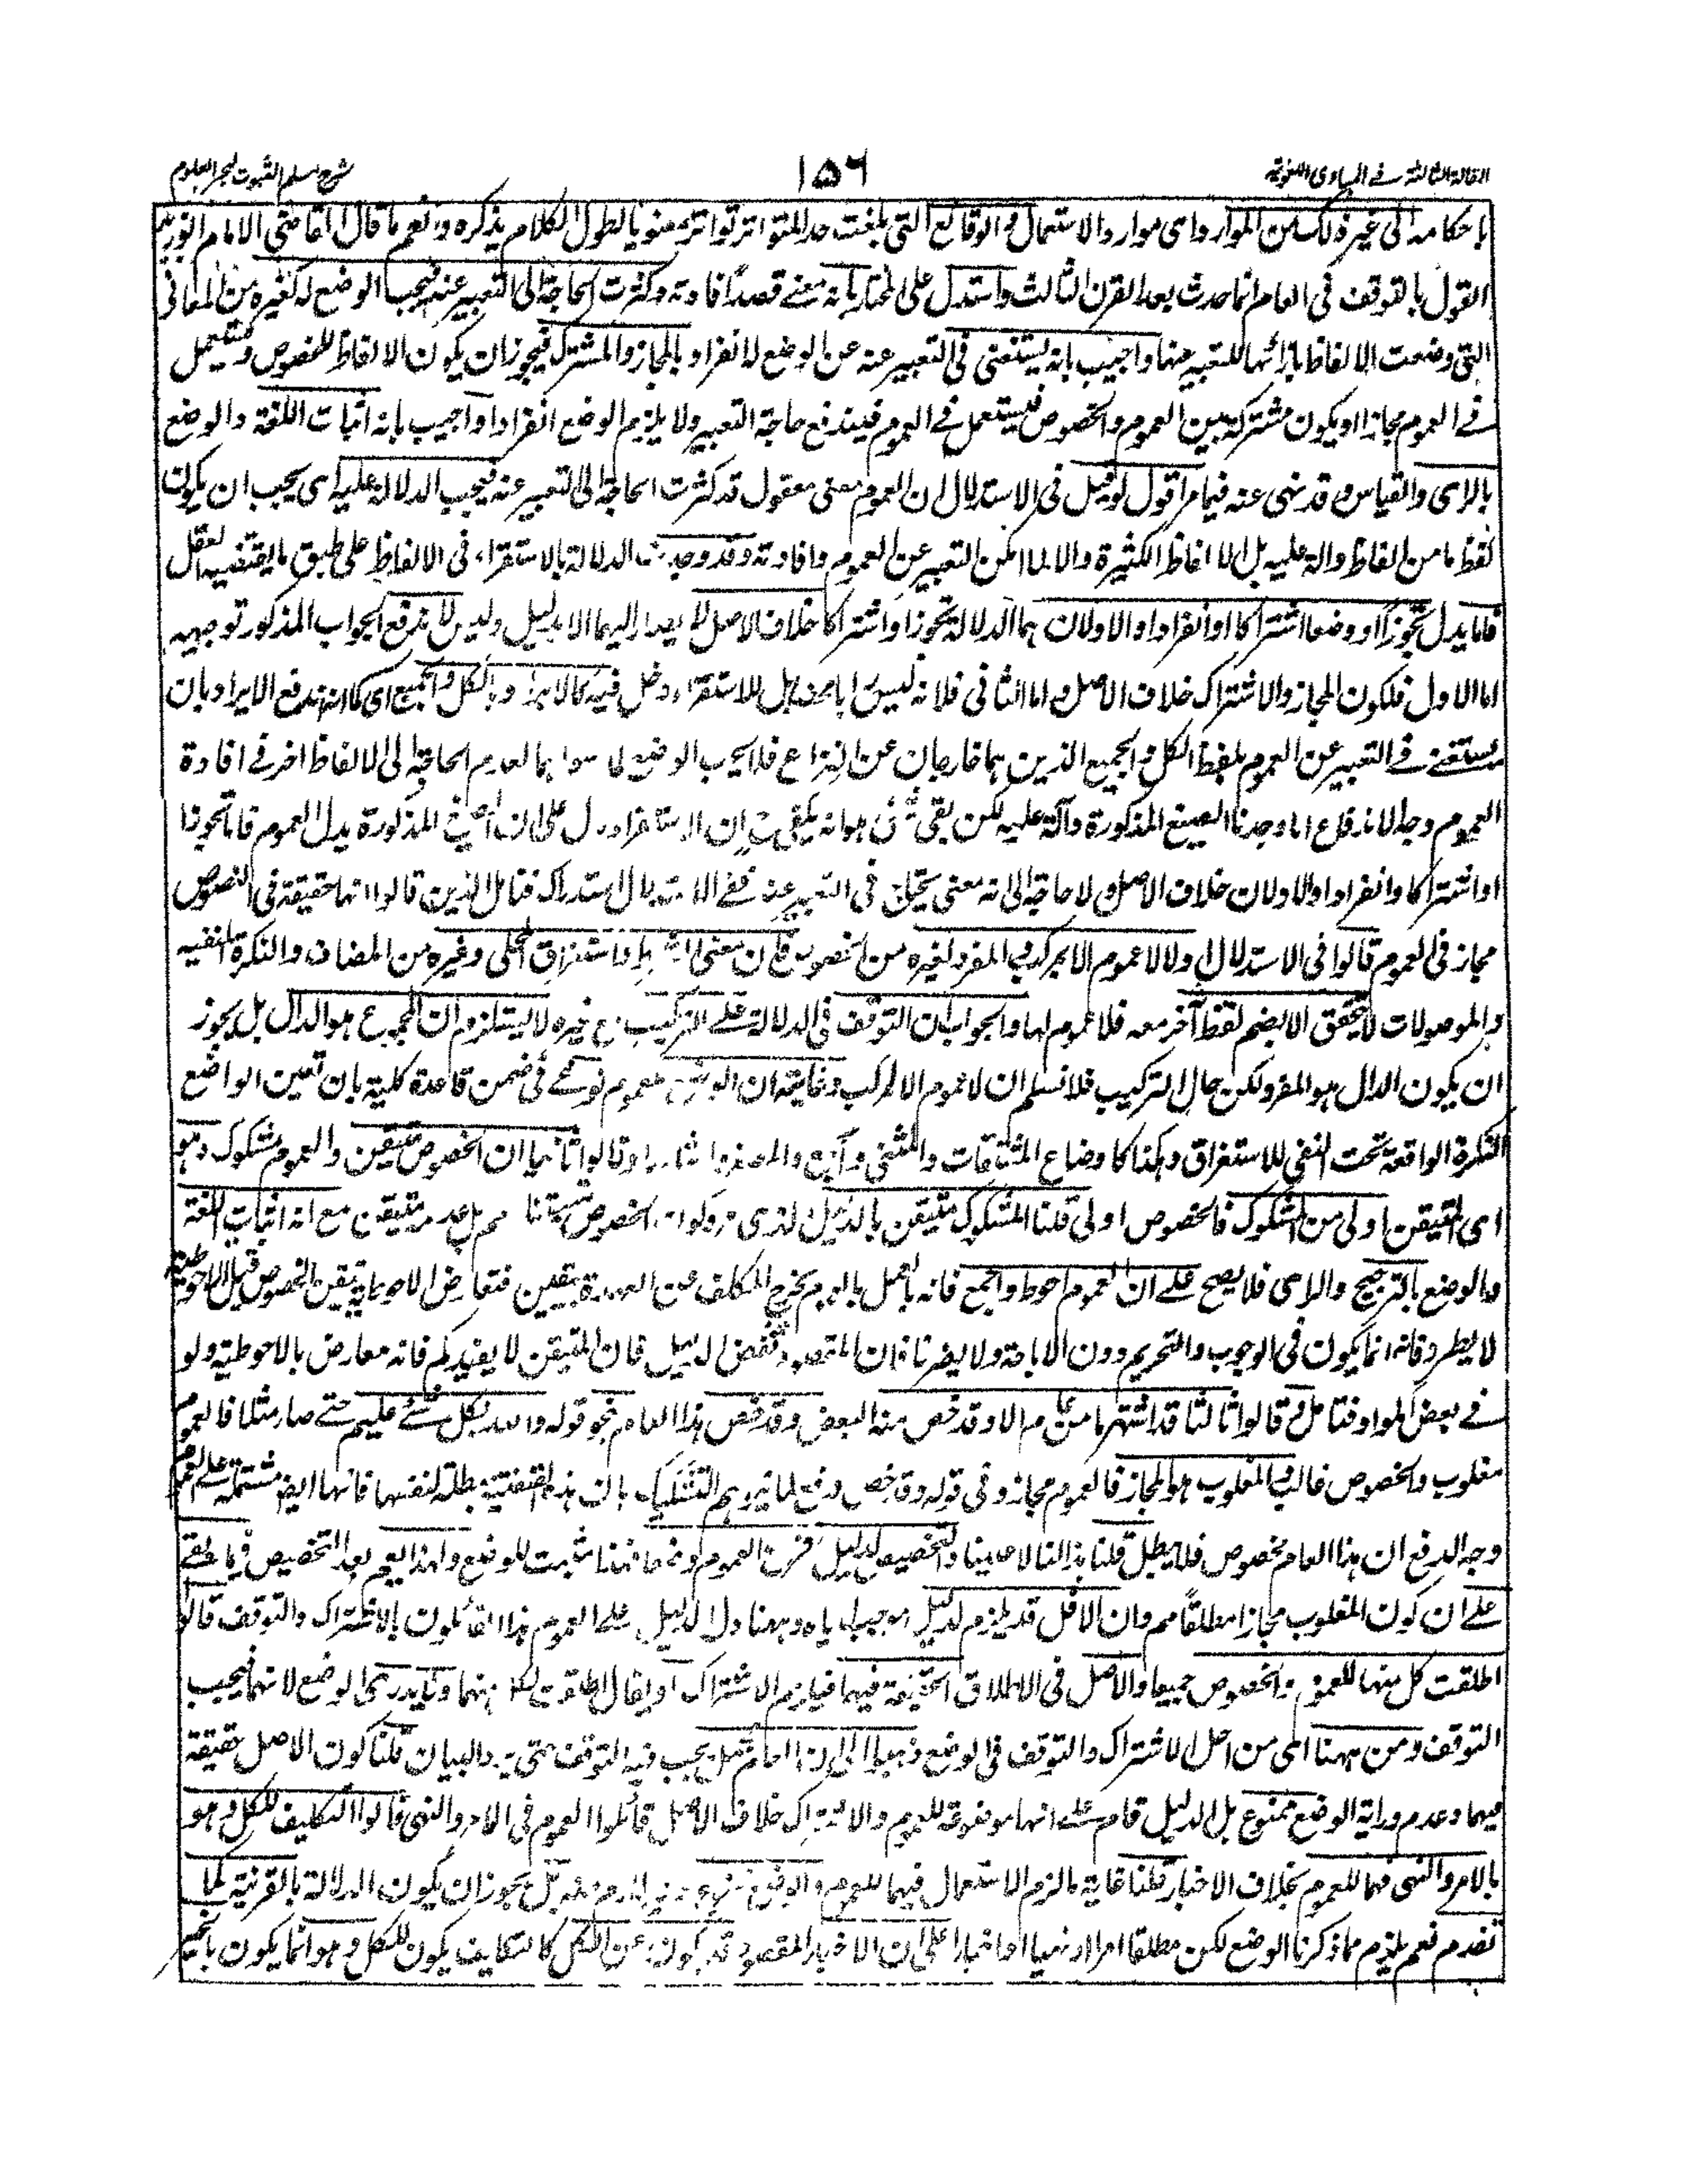 المقالة الثالثة فے المبادی اللغویة
١٥٦
شرح مسلم الثبوت لبحر العلوم
باحكامه الى غير ذلك من الموارد اى موارد الاستعمال والوقائع التى بلغت حد المتواتر تواتر معنويا لطول الكلام بذكره ونعم ما قال القاضى الامام ابو زيد
القول بالتوقف فى العام انما حدث بعد القرن الثالث واستدل على المختار بانه معنے قصدا فادته وكثرت الحاجة الى التعبير عنه فيجب الوضع له كغيره من المعانى
التى وضعت الالفاظ بازائها للتعبير عنها واجيب بانه يستغنى فى التعبير عنه عن الوضع لانفراد بالمجاز والمشترك فيجوز ان يكون الالفاظ للخصوص وتستعمل
فے العموم مجازا او يكون مشتركة بين العموم والخصوص فيستعمل فے العموم فيندفع حاجة التعبير ولا يلزم الوضع انفرادا واجيب بانه اثبات اللغة والوضع
بالراى والقياس وقد نهى عنه فيما مر اقول لو قيل فى الاستدلال ان العموم معنى معقول قد كثرت الحاجة الى التعبير عنه فيجب الدلالة عليه اى يجب ان يكون
لفظ ما من الفاظ دالة عليه بل الالفاظ الكثيرة والا لما امكن التعبير عن العموم وافادته وقد وجدت الدلالة بالاستقراء فى الالفاظ على طبق ما يقتضيه العقل
فاما يدل تجوزا او وضعا اشتراكا او انفرادا والاولان هما الدلالة تجوزا واشتراكا خلاف الاصل لا يصار اليهما الا بدليل وليس لاندفع الجواب المذكور توجيهه
اما الاول فلكون المجاز والاشتراك خلاف الاصل واما الثانى فلانه ليس اثباتا بل للاستقراء دخل فيه كالايراد بالكل والجميع اى كما انه اندفع الايراد بان
يستغنے فے التعبير عن العموم بلفظ الكل والجميع الذين هما خارجان عن النزاع فلا يجب الوضع لما سواهما لعدم الحاجة الى الالفاظ اخر فے افادة
العموم وجه الاندفاع انا وجدنا الصيغ المذكورة دالة عليه لكن بقى شئ هو انه يكفى ان الاستقراء دل على ان الصيغ المذكورة يدل العموم فاما تجوزا
او اشتراكا او انفرادا والاولان خلاف الاصل ولا حاجة الى انه معنى يحتاج فى التعبير عنه ففے الاستدلال استدراك فتامل الذين قالوا انها حقيقة فى الخصوص
مجاز فى العموم قالوا فى الاستدلال اولا لا عموم الا بمركب المفرد لغيره من الخصوص فان معنى الشرط واستغراق المحلى وغيره من المضاف والنكرة المنفيه
والموصولات لا يتحقق الا بضم لفظ آخر معه فلا عموم لها والجواب ان التوقف فى الدلالة علے التركيب مع غيره لا يستلزم ان المجموع هو الدال بل يجوز
ان يكون الدال هو المفرد لكن حال التركيب فلا نسلم ان لا عموم الا لمركب وغايته ان الوضع للعموم نوعے فى ضمن قاعدة كلية بان تعين الواضع
النكرة الواقعة تحت النفى للاستغراق وهكذا كاوضاع المشتقات والمثنى والجمع والمصغر وقالوا ثانيا ان الخصوص متيقن والعموم مشكوك وهو
اى المتيقن اولى من المشكوك فالخصوص اولى قلنا المشكوك متيقن بالدليل الذى مر وكون الخصوص متيقنا مم بل عدمه متيقن مع انه اثبات اللغة
والوضع بالترجيح والراى فلا يصح علے ان العموم احوط واجمع فانه بالعمل بالعموم يخرج المكلف عن العهدة بيقين فتعارض الاحوطية تيقن الخصوص قيل الاحوطية
لا يطرد فانه انما يكون فى الوجوب والتحريم دون الاباحة ولا يضرنا فان المقصود نقض الدليل فان المتيقن لا يفيدكم فانه معارض بالاحوطية ولو
فے بعض المواد فتامل و قالوا ثالثا قد اشتهر ما من عام الا وقد خص منه البعض وقد خص هذا العام بنحو قوله والله بكل شئے عليم حتے صار مثلا فالعموم
مغلوب والخصوص غالب والمغلوب هو المجاز فالعموم مجاز وفى قوله وقد خص دفع لما يتوهم التشكيك بان هذه القضية مبطلة لنفسها فانها ايضا مشتملة علے العموم
وجه الدفع ان هذا العام مخصوص فلا يبطل قلنا هذا لنا لا علينا والتخصيص لدليل فرع العموم وضعا فهذا مثبت للوضع ولهذا يعم بعد التخصيص فيما بقے
علے ان كون المغلوب مجازا مطلقا مم وان الاقل قد يلزم لدليل موجب اياه وههنا دل الدليل علے العموم هذا القائلون بالاشتراك والتوقف قالوا
اطلقت كل منها للعموم والخصوص جميعا والاصل فى الاطلاق الحقيقة فيهما فيلزم الاشتراك او يقال اطلقوا لكل منهما ولا يدرى الوضع لايهما فيجب
التوقف ومن ههنا اى من اجل الاشتراك والتوقف فى الوضع ذهبوا الى ان العام مجمل يجب فيه التوقف حتى يرد البيان قلنا كون الاصل حقيقة
فيهما وعدم دراية الوضع ممنوع بل الدليل قام علے انها موضوعة للعموم والاشتراك خلاف الاصل قائلوا العموم فى الامر والنهى قالوا التكليف للكل وهو
بالامر والنهى فهما للعموم بخلاف الاخبار قلنا غاية ما لزم الاستعمال فيهما للعموم بل يجوز ان يكون الدلالة بالقرينة كما
تقدم نعم يلزم مما ذكرنا الوضع لكن مطلقا امرا او نهيا او اخبارا على ان الاخبار المقصود قد يكون عن الكل كالتكليف يكون للكل وهو انما يكون بالخبر